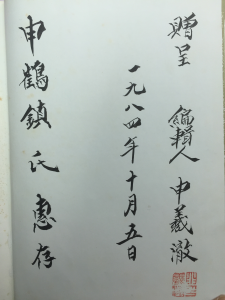 贈呈 編輯人 申羲澈
一九八四年十月五日
申鶴鎮氏惠存